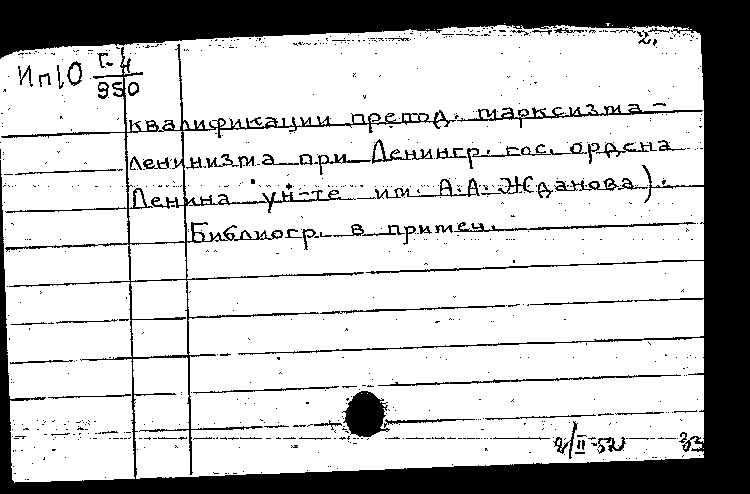 2.
Ип10 Г-4
350
квалификации препод. марксизма-
ленинизма при Ленингр. гос. ордена
Ленина ун-те им. А.А. Жданова).
Библиогр. в примеч.